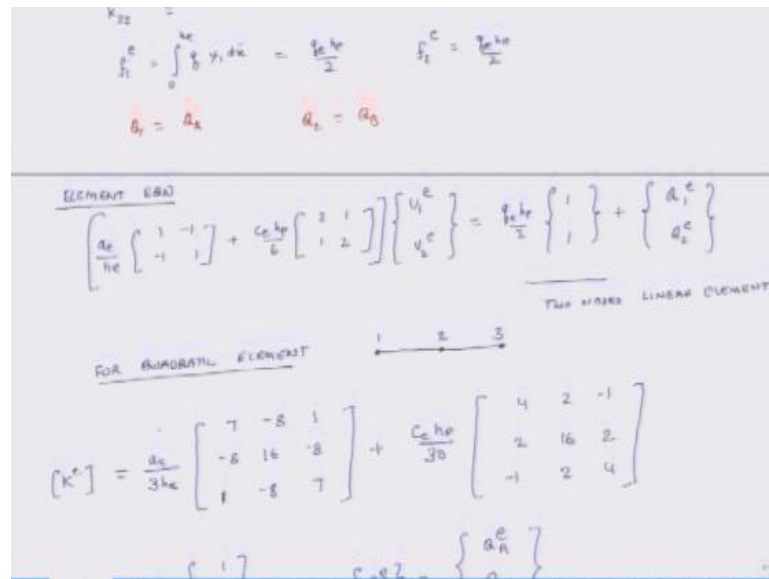 K₂₂ =
f₁ᵉ = ∫₀^{he} q ψ₁ dx̄ = qₑhₑ/2    f₂ᵉ = qₑhₑ/2
Q₁ = Qₐ    Q₂ = Q_B
ELEMENT EQN
[aₑ/hₑ [1 -1; -1 1] + cₑhₑ/6 [2 1; 1 2]] {u₁ᵉ; u₂ᵉ} = qₑhₑ/2 {1; 1} + {Q₁ᵉ; Q₂ᵉ}
TWO NODED LINEAR ELEMENT
FOR QUADRATIC ELEMENT    1 2 3
[Kᵉ] = aₑ/3hₑ [7 -8 1; -8 16 -8; 1 -8 7] + cₑhₑ/30 [4 2 -1; 2 16 2; -1 2 4]